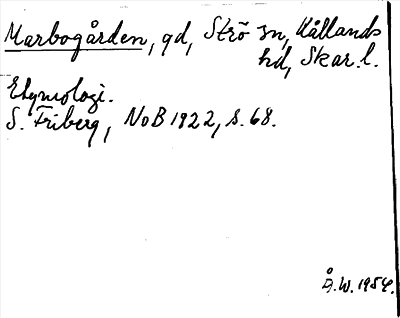 Marbogården, gd, Strö sn, Kållands
hd, Skar. l.
Etymologi.
S. Friberg, NoB 1922, s. 68.
Å.W. 1954.